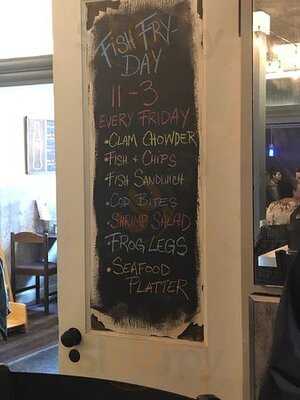 FISH FRY-
DAY
11-3
EVERY FRIDAY
•CLAM CHOWDER
•FISH + CHIPS
•FISH SANDWICH
•COD BITES
•SHRIMP SALAD
•FROG LEGS
•SEAFOOD
PLATTER